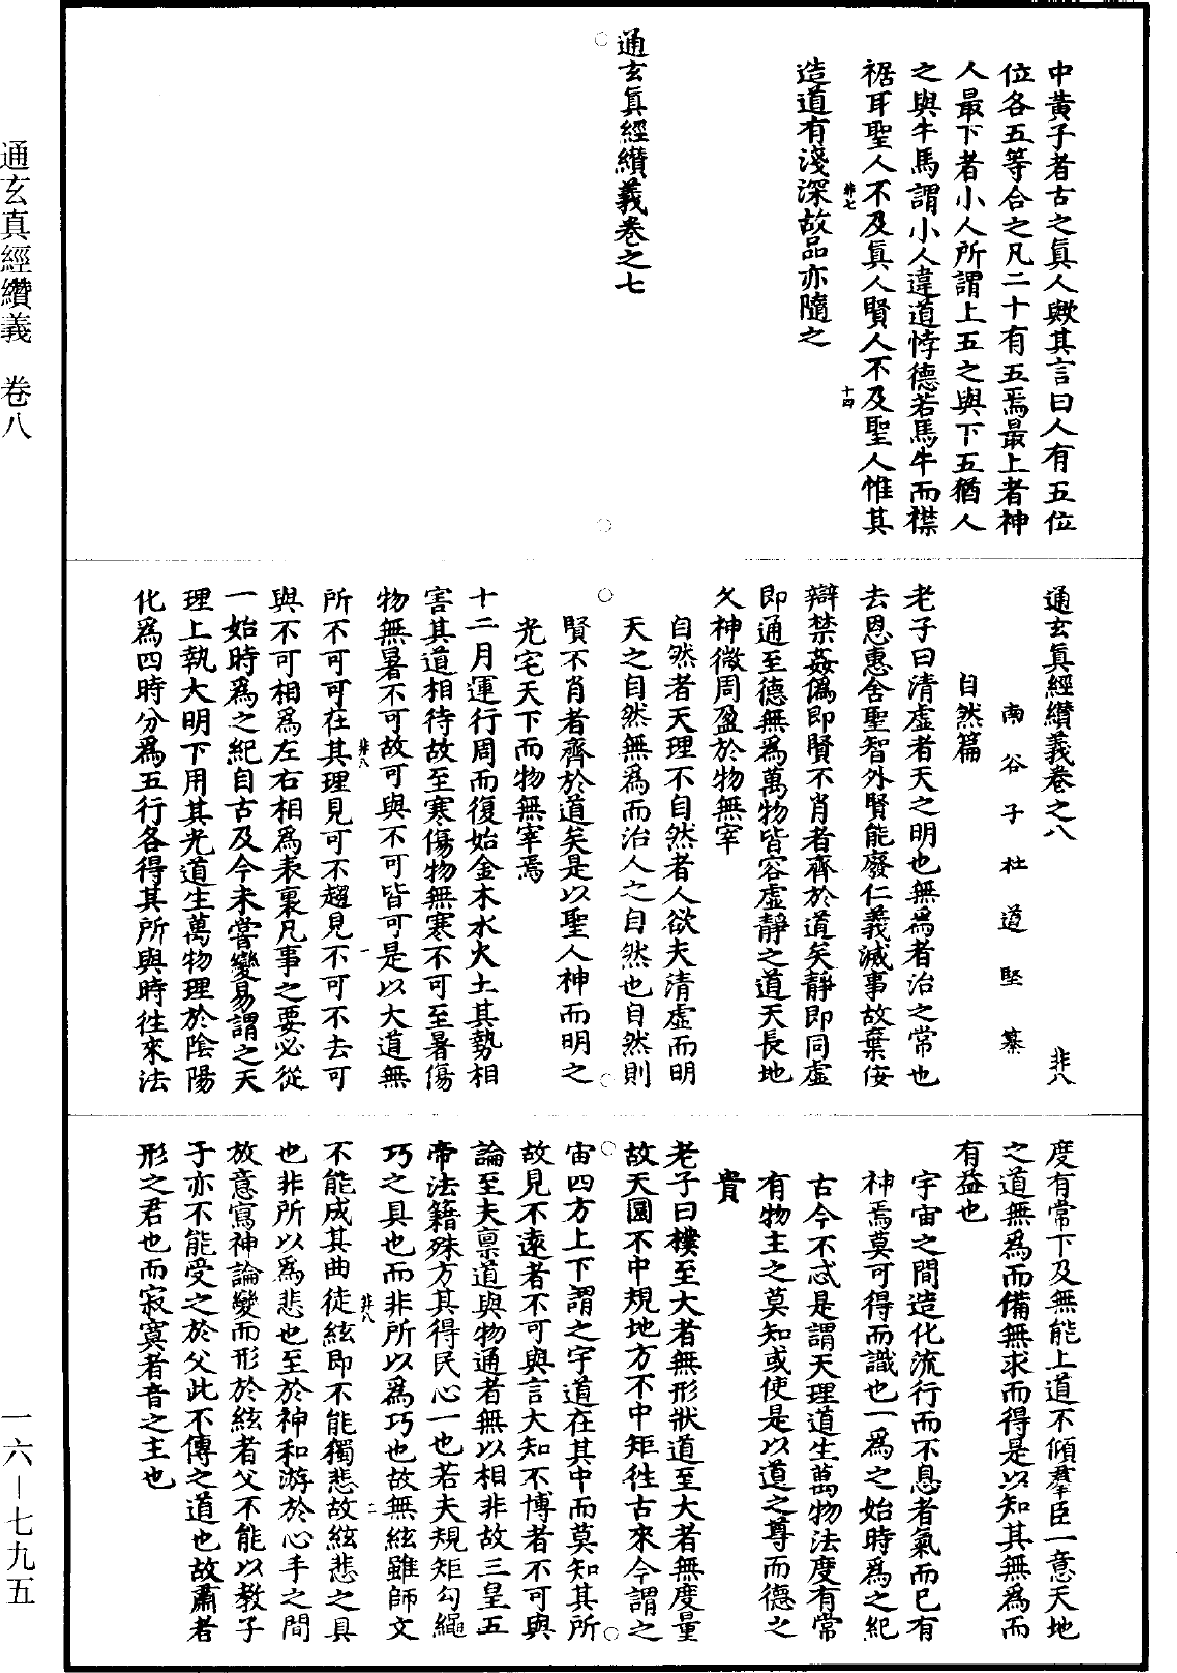 中黃子者古之眞人歟其言曰人有五位
位各五等合之凡二十有五焉最上者神
人最下者小人所謂上五之與下五猶人
之與牛馬謂小人違道悖德若馬牛而襟
裾耳聖人不及眞人賢人不及聖人惟其
非七
十四
造道有淺深故品亦隨之
通玄眞經纘義卷之七
通玄眞經纘義卷之八
非八
南谷子杜道堅纂
自然篇
老子曰清虛者天之明也無爲者治之常也
去恩惠舍聖智外賢能廢仁義滅事故棄佞
辯禁姦僞即賢不肖者齊於道矣靜即同虛
即通至德無爲萬物皆容虛靜之道天長地
久神微周盈於物無宰
自然者天理不自然者人欲夫清虛而明
天之自然無爲而治人之自然也自然則
賢不肖者齊於道矣是以聖人神而明之
光宅天下而物無宰焉
十二月運行周而復始金木水火土其勢相
害其道相待故至寒傷物無寒不可至暑傷
物無暑不可故可與不可皆可是以大道無
非八
一
所不可可在其理見可不趨見不可不去可
與不可相爲左右相爲表裏凡事之要必從
一始時爲之紀自古及今未嘗變易謂之天
理上執大明下用其光道生萬物理於陰陽
化爲四時分爲五行各得其所與時往來法
度有常下及無能上道不傾羣臣一意天地
之道無爲而備無求而得是以知其無爲而
有益也
宇宙之間造化流行而不息者氣而已有
神焉莫可得而識也一爲之始時爲之紀
古今不忒是謂天理道生萬物法度有常
有物主之莫知或使是以道之尊而德之
貴
老子曰樸至大者無形狀道至大者無度量
故天圓不中規地方不中矩往古來今謂之
宙四方上下謂之宇道在其中而莫知其所
故見不遠者不可與言大知不博者不可與
論至夫稟道與物通者無以相非故三皇五
帝法籍殊方其得民心一也若夫規矩勾繩
巧之具也而非所以爲巧也故無絃雖師文
非八
二
不能成其曲徒絃即不能獨悲故絃悲之具
也非所以爲悲也至於神和游於心手之間
放意寫神論變而形於絃者父不能以教子
子亦不能受之於父此不傳之道也故肅者
形之君也而寂寞者音之主也
通玄真經纘義　卷八
一六—七九五